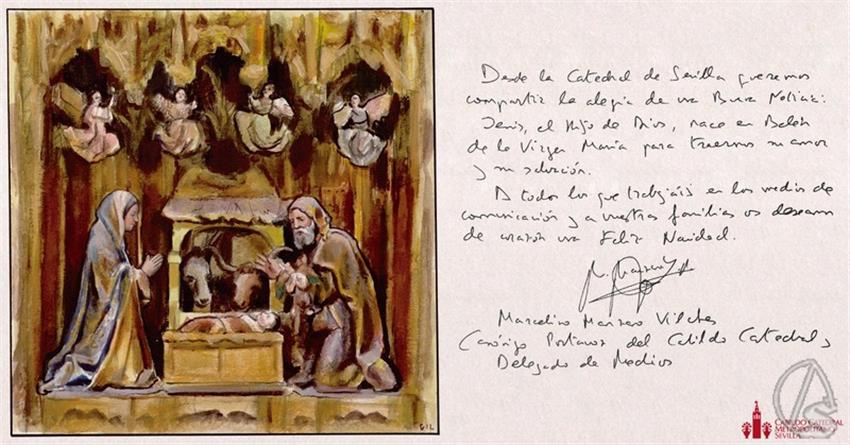 GIL
Desde la Catedral de Sevilla queremos
compartir la alegría de una Buena Noticia:
Jesús, el Hijo de Dios, nace en Belén
de la Virgen María para traernos su amor
y su salvación.
A todos los que trabajáis en los medios de
comunicación y a vuestras familias os deseamos
de corazón una Feliz Navidad.
Marcelino Manzano Vilches
Canónigo del Cabildo Catedral y
Delegado de Medios
CABILDO CATEDRAL
METROPOLITANO
SEVILLA